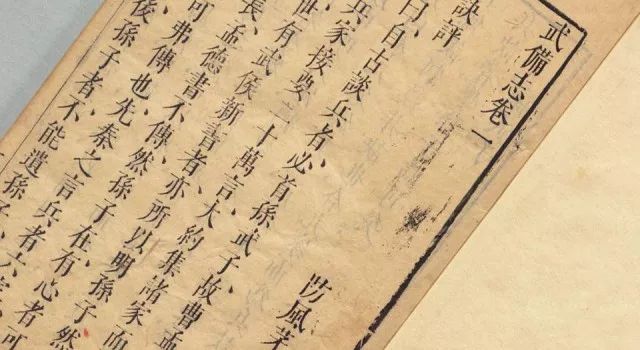 武備志卷一
防風茅
訣評
曰、自古談兵者、必首孫武子、故曹孟
兵家接要二十萬言、大約集諸家而
世有武侯新書者、亦所以明孫子
長、孟德書不傳、然孫子在、有心者可
可弗傳也、先秦之言兵者六家
後孫子者、不能遺孫子